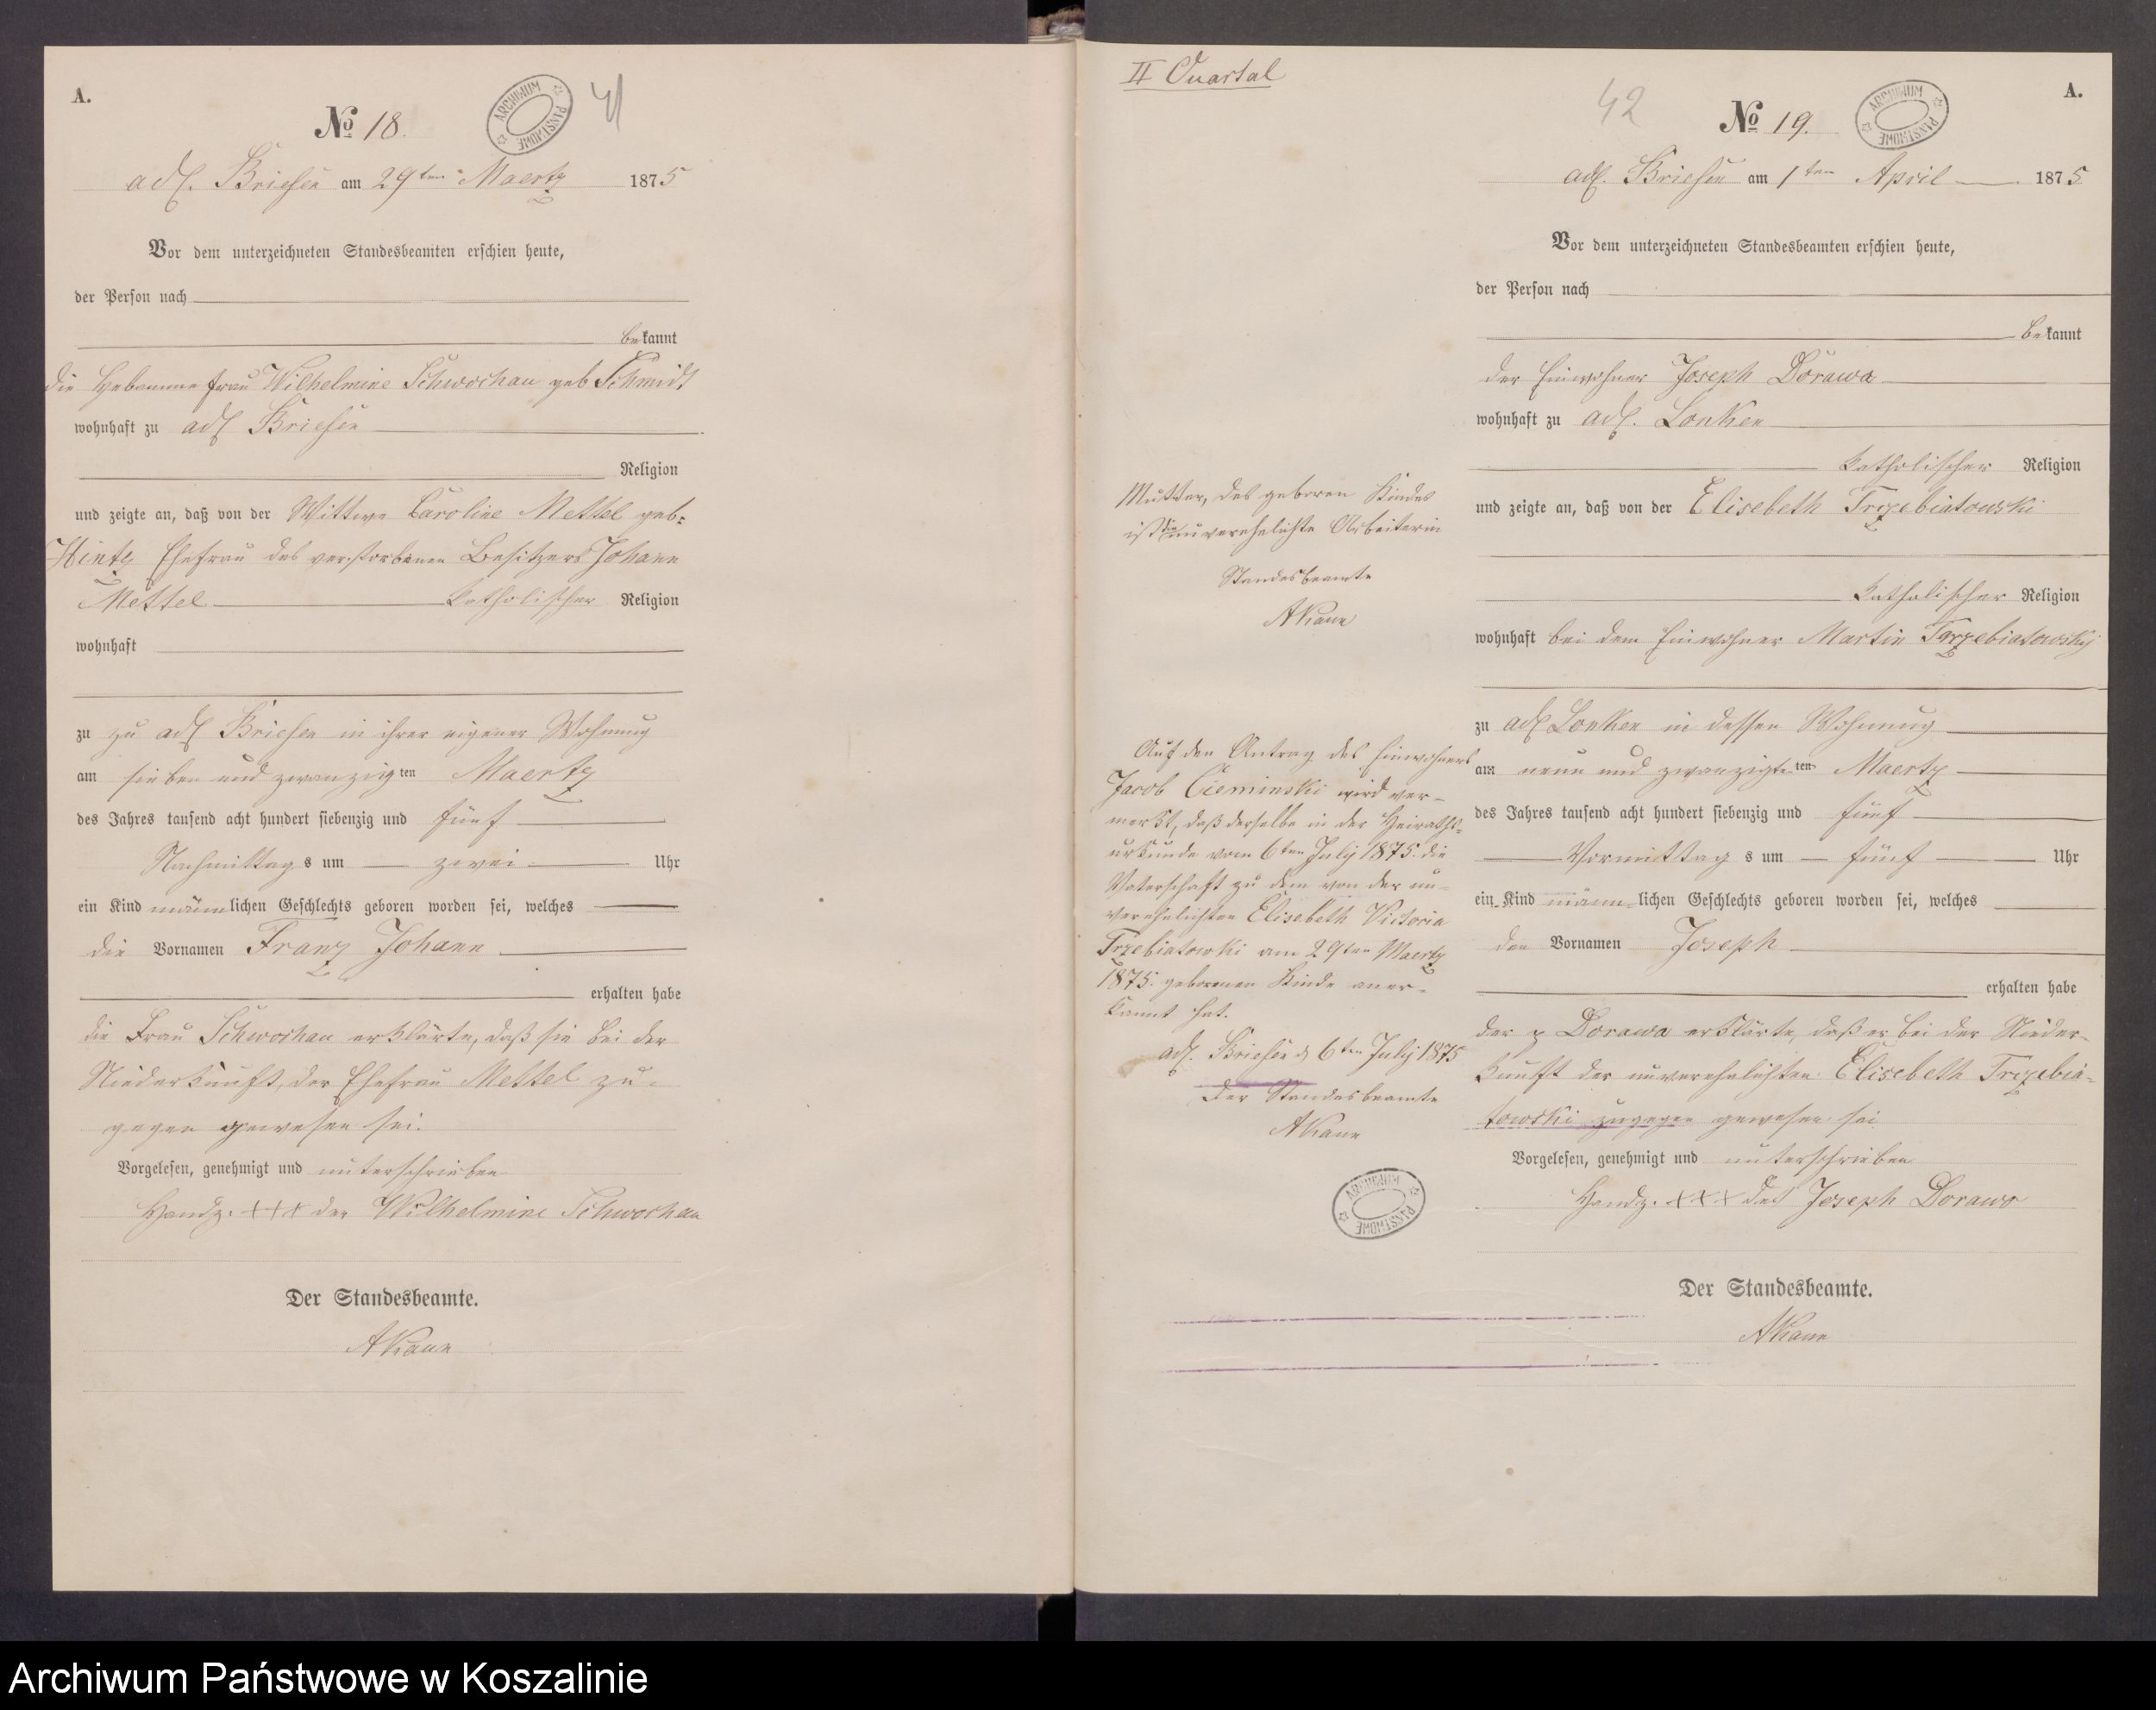 A.
No 18.
41
ARCHIWUM PAŃSTWOWE
adl. Briesen am 29ten Maertz 1875
Vor dem unterzeichneten Standesbeamten erschien heute,
der Person nach
bekannt
die Hebamme Frau Wilhelmine Schwochau geb Schmidt
wohnhaft zu adl Briesen
Religion
und zeigte an, daß von der Wittwe Caroline Mettel geb:
Hintz Ehefrau des verstorbenen Besitzers Johann
Mettel katholischer Religion
wohnhaft
zu zu adl Briesen in ihrer eigener Wohnung
am sieben und zwanzigten Maertz
des Jahres tausend acht hundert siebenzig und fünf
Nachmittags um zwei Uhr
ein Kind männlichen Geschlechts geboren worden sei, welches
die Vornamen Franz Johann
erhalten habe
die Frau Schwochau erklärte, daß sie bei der
Niederkunft, der Ehefrau Mettel zu-
gegen gewesen sei.
Vorgelesen, genehmigt und unterschrieben
Handz. +++ der Wilhelmine Schwochau
Der Standesbeamte.
AKaun
II Quartal
42
A.
No 19.
ARCHIWUM PAŃSTWOWE
adl. Briesen am 1ten April 1875
Vor dem unterzeichneten Standesbeamten erschien heute,
der Person nach
bekannt
der Einwohner Joseph Dorawa
wohnhaft zu adl. Lonken
katholischer Religion
und zeigte an, daß von der Elisebeth Trzebiatowski
katholischer Religion
wohnhaft bei dem Einwohner Martin Trzebiatowsky
zu adl Lonken in dessen Wohnung
am neun und zwanzigten Maertz
des Jahres tausend acht hundert siebenzig und fünf
Vormittags um fünf Uhr
ein Kind männlichen Geschlechts geboren worden sei, welches
den Vornamen Joseph
erhalten habe
der p Dorawa erklärte, daß er bei der Nieder-
kunft der unverehelichten Elisebeth Trzebia-
towski zugegen gewesen sei
Vorgelesen, genehmigt und unterschrieben
Handz. +++ des Joseph Dorawa
Der Standesbeamte.
AKaun
Mutter, des geboren Kindes
ist die unverehelichte Arbeiterin
Standesbeamte
AKaun
Auf den Antrag des Einwohners
Jacob Cieminski wird ver-
merkt, daß derselbe in der Heiraths-
urkunde vom 6ten July 1875. die
Vaterschaft zu dem von der un-
verehelichten Elisebeth Victoria
Trzebiatowski am 29ten Maertz
1875. geborenen Kinde aner-
kannt hat.
adl. Briesen d 6ten July 1875
Der Standesbeamte
AKaun
ARCHIWUM PAŃSTWOWE
Archiwum Państwowe w Koszalinie